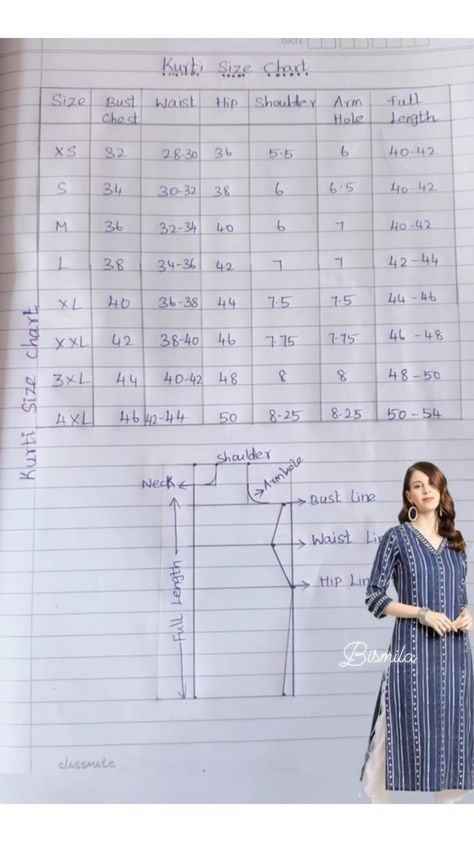 DATE
Kurti Size Chart
Size Bust Chest Waist Hip Shoulder Arm Hole Full Length
XS 32 28-30 36 5.5 6 40-42
S 34 30-32 38 6 6.5 40-42
M 36 32-34 40 6 7 40-42
L 38 34-36 42 7 7 42-44
XL 40 36-38 44 7.5 7.5 44-46
XXL 42 38-40 46 7.75 7.75 46-48
3XL 44 40-42 48 8 8 48-50
4XL 46 42-44 50 8.25 8.25 50-54
Kurti Size Chart
Shoulder
Neck
Armhole
Bust Line
Waist Lin
Hip Lin
Full Length
Bismila
classmate